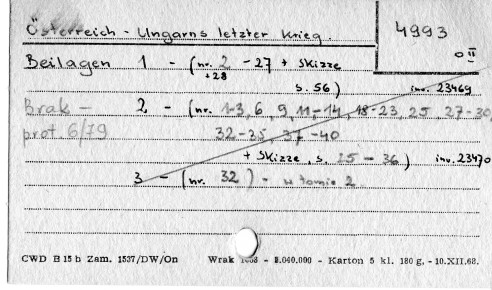 Österreich - Ungarns letzter Krieg.
4993
O II
Beilagen 1 - (nr. 2 - 27 + Skizze
+28
s. 56) inv. 23469
Brak - 2 - (nr. 1-3, 6, 9, 11-14, 18-23, 25, 27-30,
prot. 6/79 32-35, 37-40
+ Skizze, s. 25 - 36) inv. 23470
3 - (nr. 32) - w tomie 2
CWD B 15 b Zam. 1537/DW/On Wrak - 5.040.000 - Karton 5 kl. 180 g, - 10.XII.68.